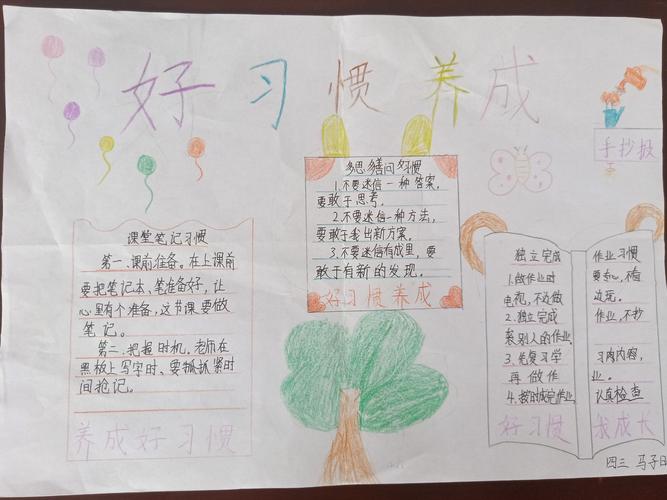 好习惯养成
手抄报
课堂笔记习惯
第一、课前准备。在上课前
要把笔记本、笔准备好,让
心里有个准备,这节课要做
笔记。
第二、把握时机。老师在
黑板上写字时、要抓紧时
间抢记。
养成好习惯
多思善问习惯
1.不要迷信一种答案,
要敢于思考。
2.不要迷信一种方法,
要敢于找出新方案。
3.不要迷信有成里,要
敢于有新的发现。
好习惯养成
独立完成 作业习惯
1.做作业时 要专心,不看
电视,不边做 边玩。
2.独立完成 作业,不抄
袭别人的作业
3.先复习学 习内容,
再做作 业。
4.按时成完作业 认真检查
好习惯 我成长
四三 马子